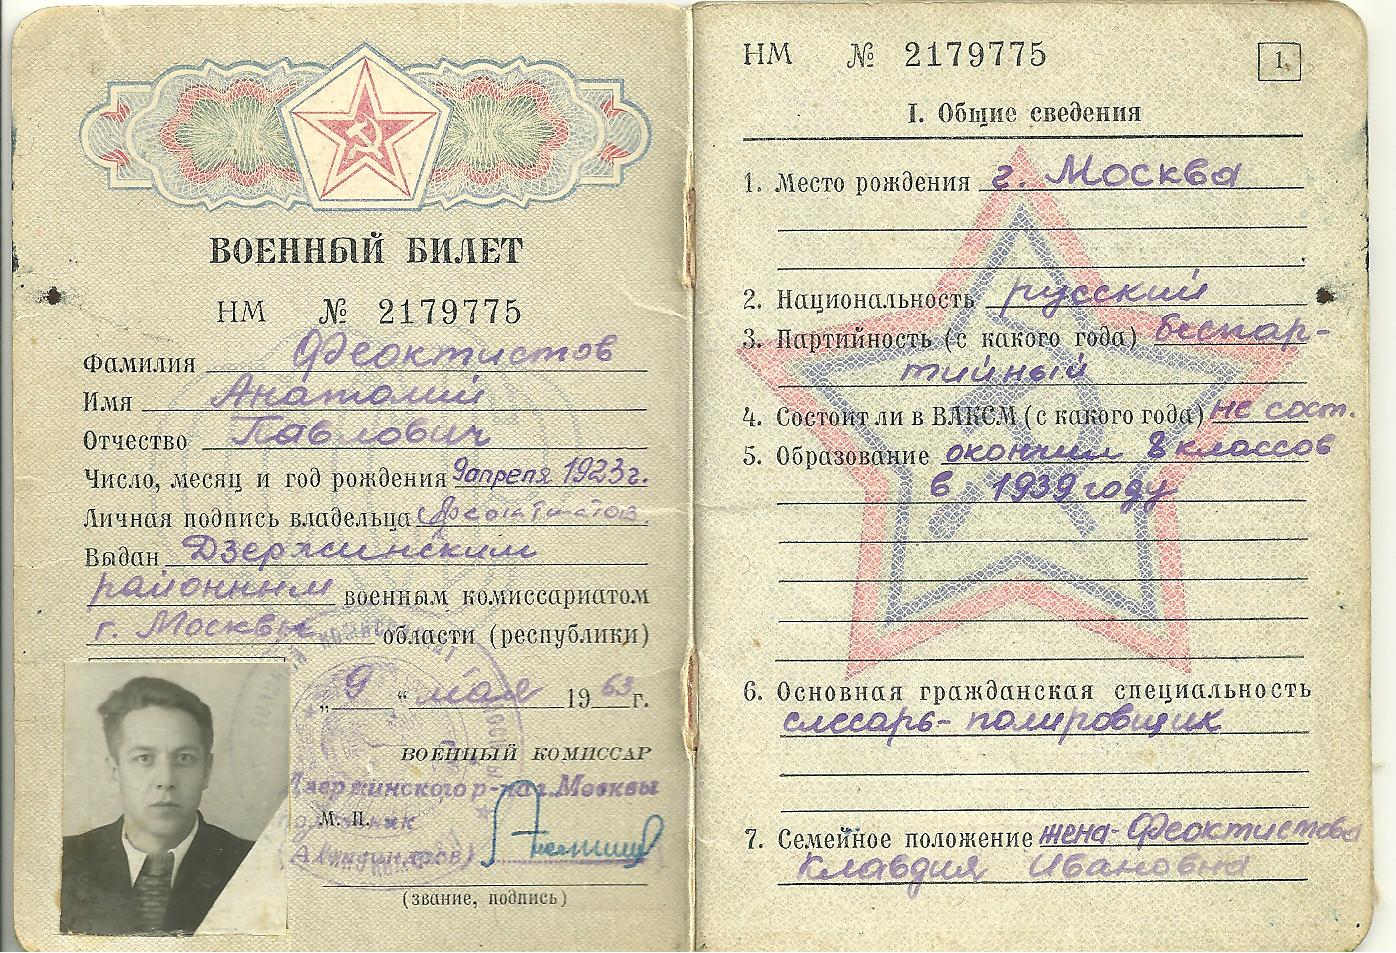 ВОЕННЫЙ БИЛЕТ
НМ № 2179775
Фамилия Феоктистов
Имя Анатолий
Отчество Павлович
Число, месяц и год рождения 9 апреля 1923 г.
Личная подпись владельца Феоктистов
Выдан Дзержинским
районным военным комиссариатом
г. Москвы области (республики)
„9“ мая 1963 г.
ВОЕННЫЙ КОМИССАР
Дзержинского р-на г. Москвы
М. П.
(звание, подпись)
НМ № 2179775
1.
I. Общие сведения
1. Место рождения г. Москва
2. Национальность русский
3. Партийность (с какого года) беспар-
тийный
4. Состоит ли в ВЛКСМ (с какого года) не сост.
5. Образование окончил 8 классов
в 1939 году
6. Основная гражданская специальность
слесарь-полировщик
7. Семейное положение жена-Феоктистова
Клавдия Ивановна